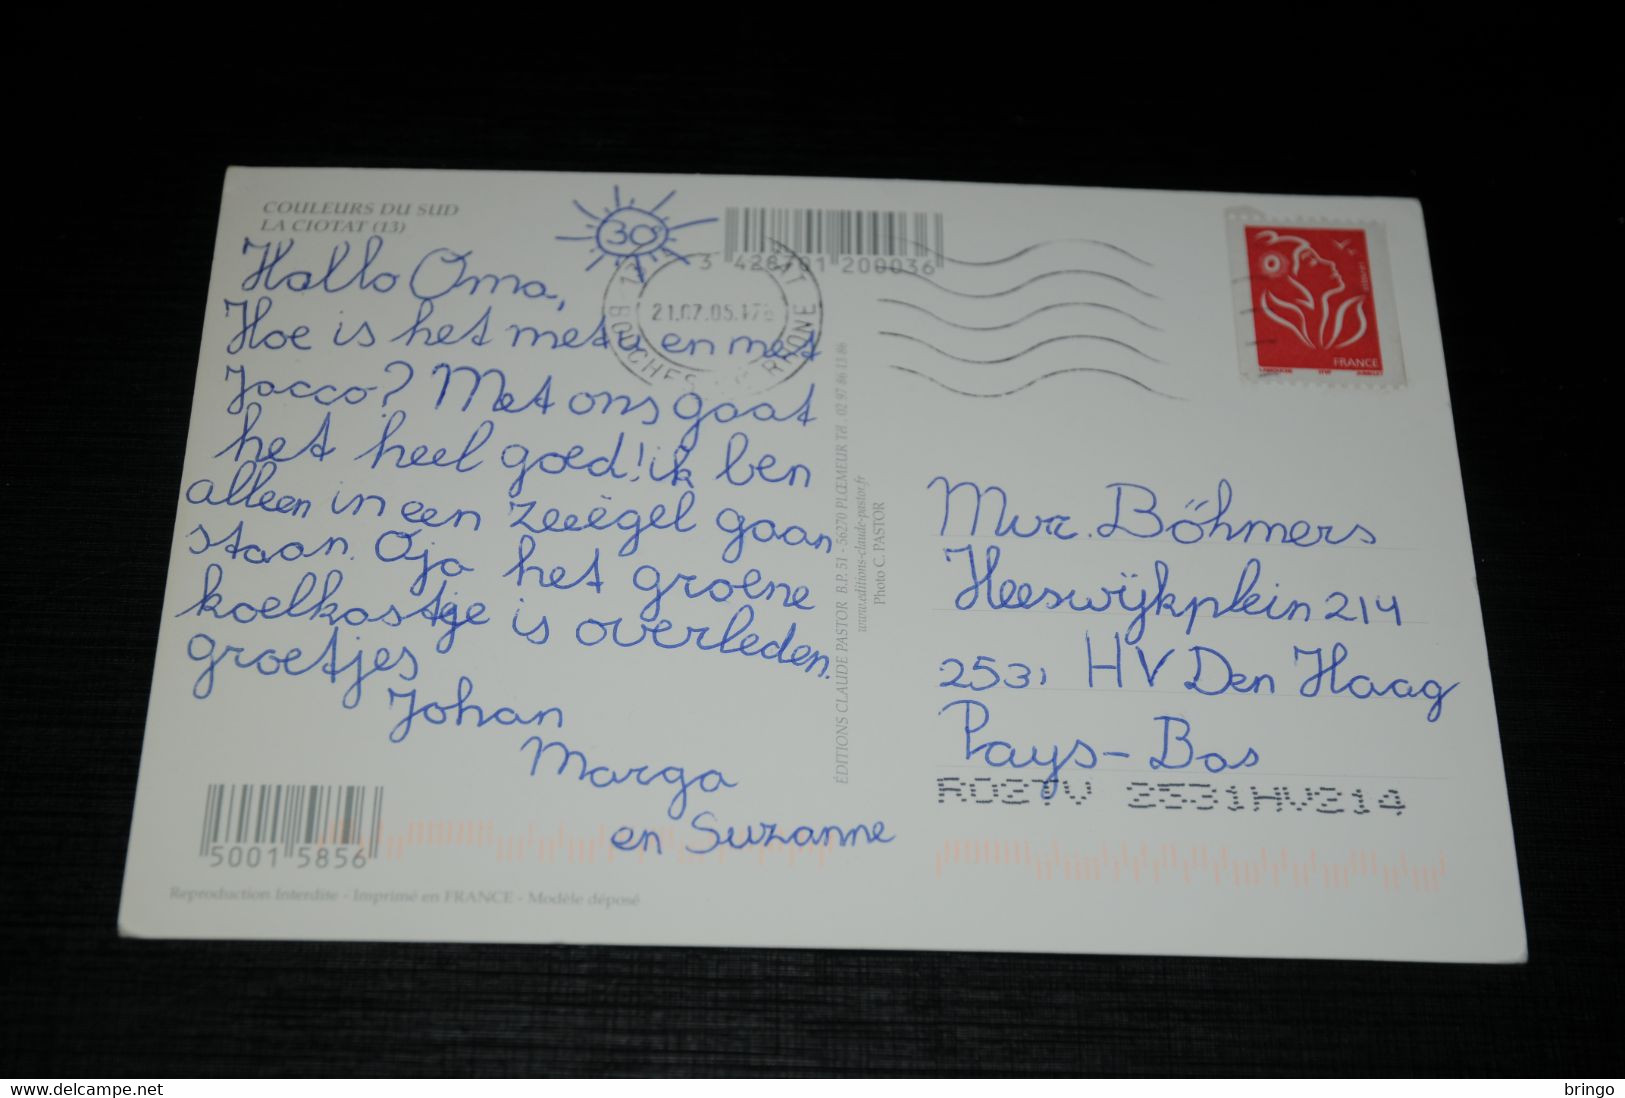 COULEURS DU SUD
LA CIOTAT (13)
30°
3 428701 200036
Hallo Oma,
Hoe is het met u en met
Jacco? Met ons gaat
het heel goed! ik ben
alleen in een zeeëgel gaan
staan. Oja het groene
koelkastje is overleden.
groetjes
Johan
Marga
en Suzanne
13
21.07.05.17
BOUCHES RHONE
ÉDITIONS CLAUDE PASTOR B.P. 51 - 56270 PLŒMEUR Tél. 02 97 86 13 86
www.editions-claude-pastor.fr
Photo C. PASTOR
FRANCE
Mvr. Böhmers
Heeswijkplein 214
2531 HV Den Haag
Pays-Bas
R027V 2531HV214
5001 5856
Reproduction Interdite - Imprimé en FRANCE - Modèle déposé
www.delcampe.net
bringo